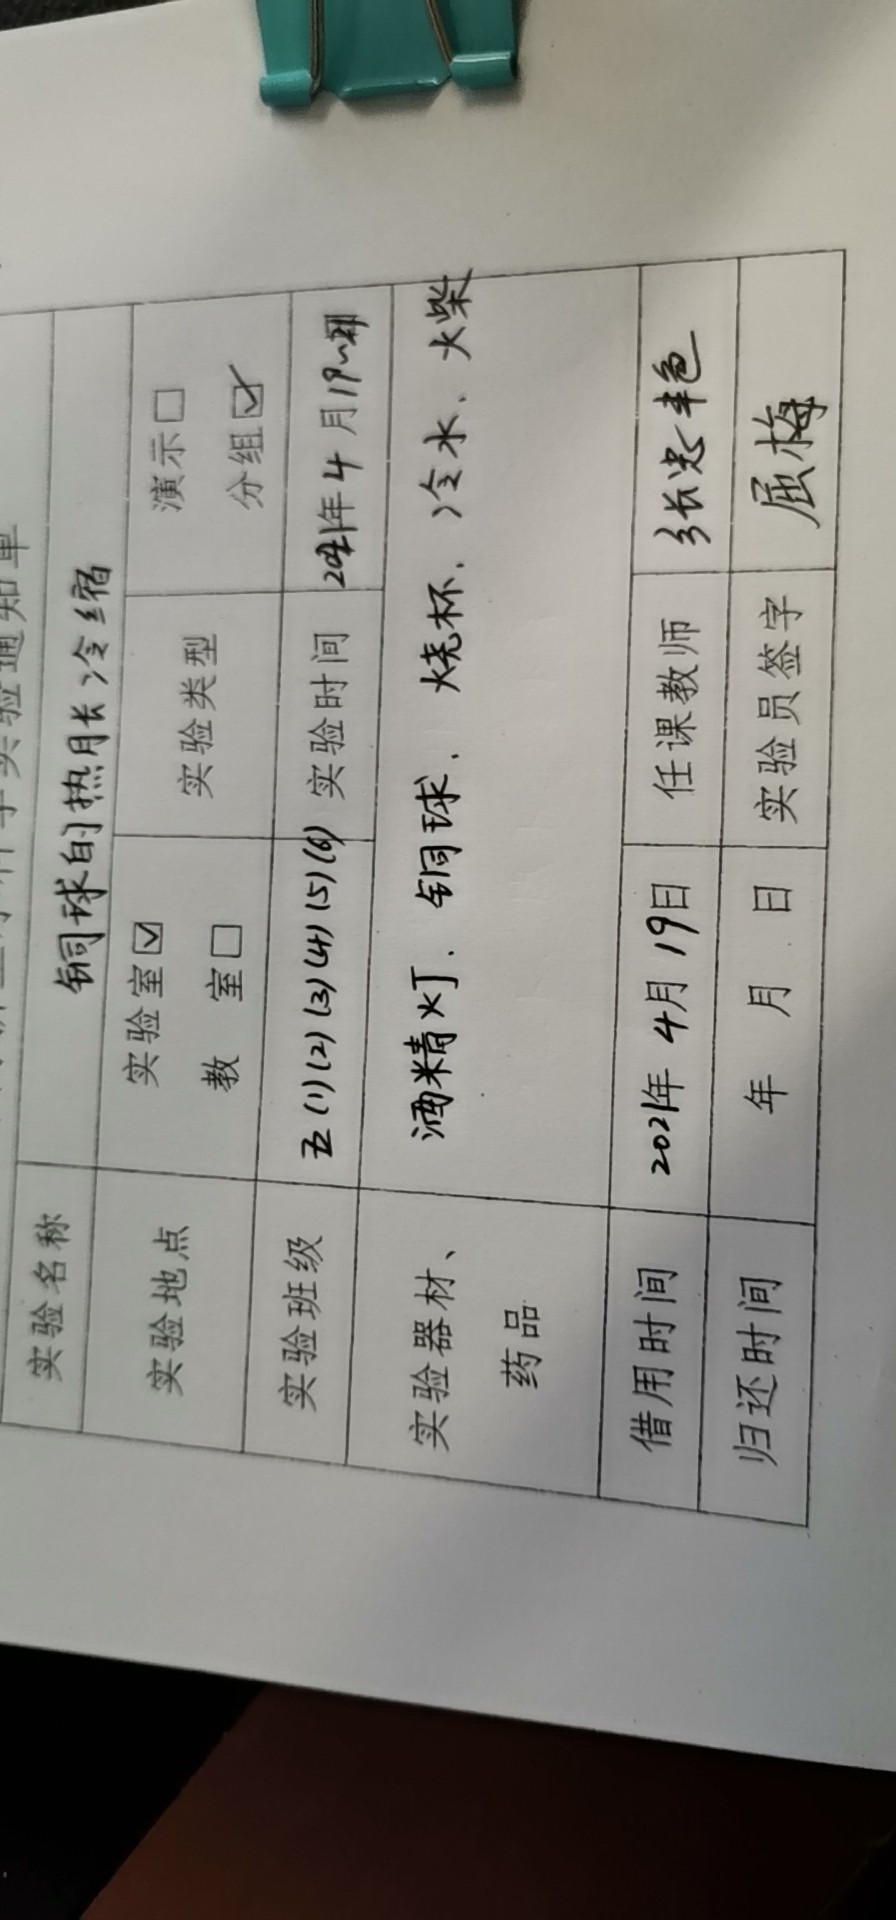 科学实验通知单
实验名称 铜球的热胀冷缩
实验地点 实验室☑ 教 室□ 实验类型 演示□ 分组☑
实验班级 五(1)(2)(3)(4)(5)(6) 实验时间 2021年4月19日
实验器材、药品 酒精灯、铜球、烧杯、冷水、火柴
借用时间 2021年4月19日 任课教师 张忠艳
归还时间 年 月 日 实验员签字 屈梅